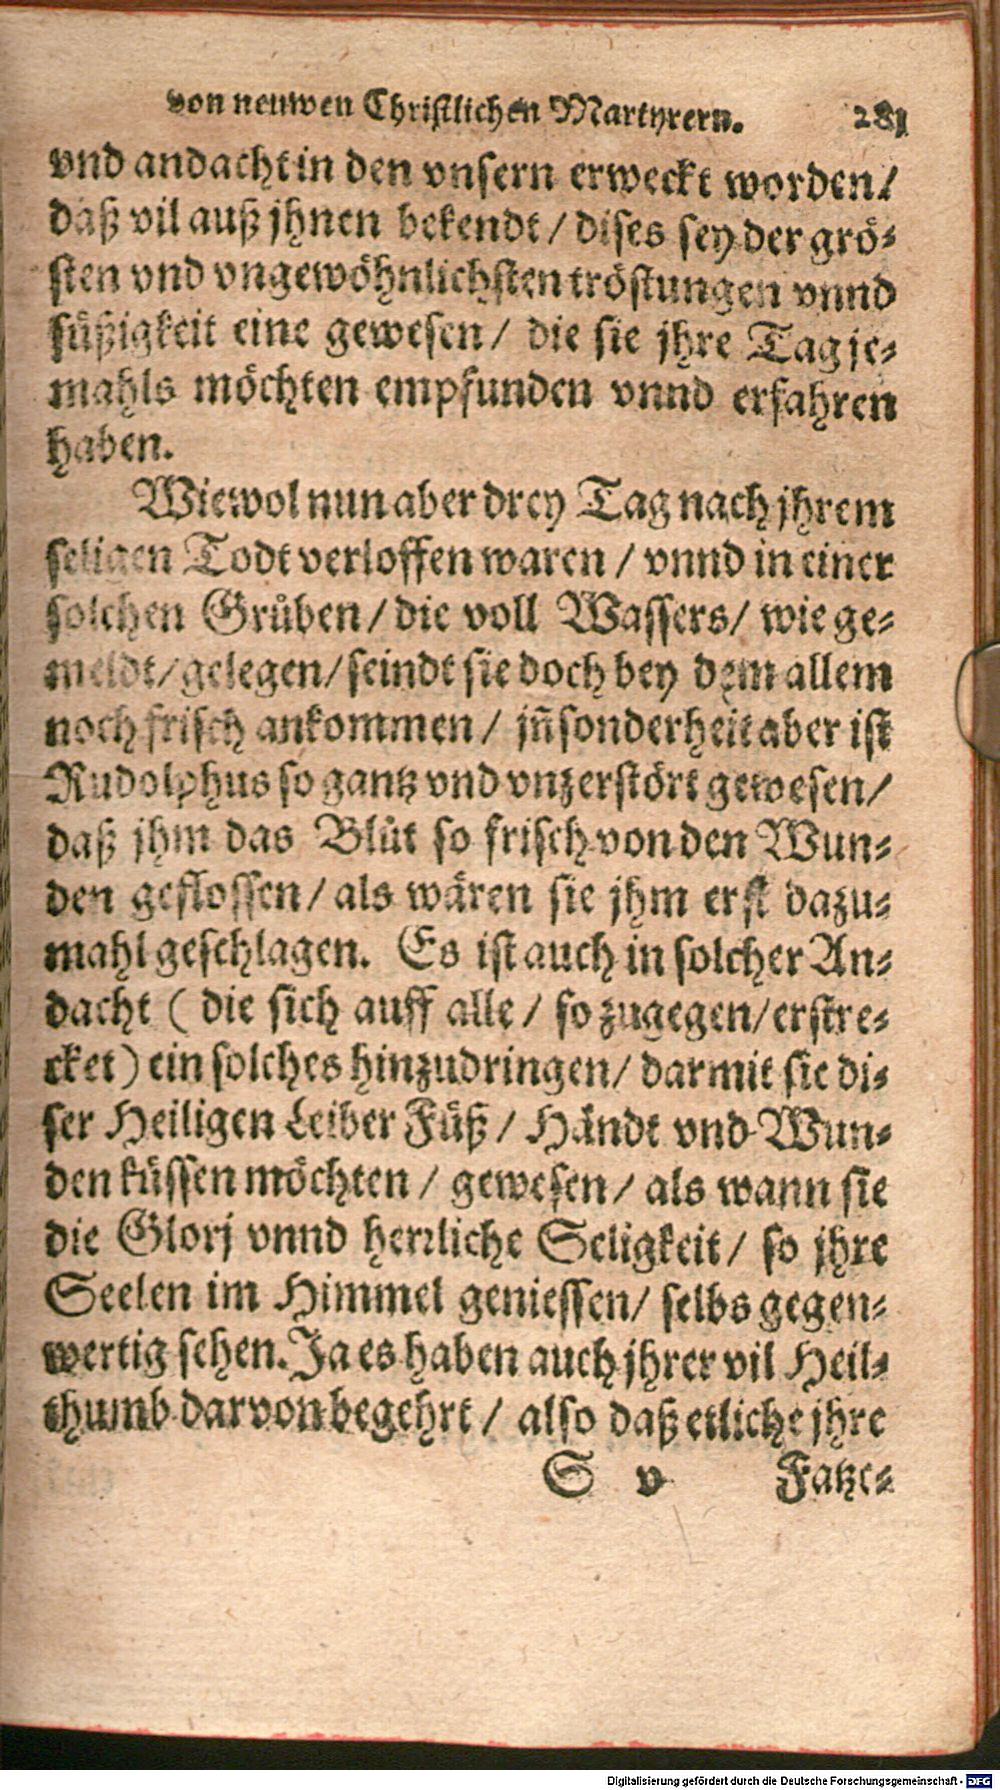 von neuwen Christlichen Martyrern. 281
vnd andacht in den vnsern erweckt worden/
daß vil auß jhnen bekendt / dises sey der grö-
sten vnd vngewöhnlichsten tröstungen vnnd
süßigkeit eine gewesen / die sie jhre Tag je-
mahls möchten empfunden vnnd erfahren
haben.
Wiewol nun aber drey Tag nach jhrem
seligen Todt verloffen waren / vnnd in einer
solchen Grůben / die voll Wassers / wie ge-
meldt / gelegen / seindt sie doch bey dem allem
noch frisch ankommen / jñsonderheit aber ist
Rudolphus so gantz vnd vnzerstört gewesen /
daß jhm das Blůt so frisch von den Wun-
den geflossen / als wären sie jhm erst dazu-
mahl geschlagen. Es ist auch in solcher An-
dacht ( die sich auff alle / so zugegen / erstre-
cket ) ein solches hinzudringen / darmit sie di-
ser Heiligen Leiber Füß / Händt vnd Wun-
den küssen möchten / gewesen / als wann sie
die Glorj vnnd herrliche Seligkeit / so jhre
Seelen im Himmel geniessen / selbs gegen-
wertig sehen. Ja es haben auch jhrer vil Heil-
thumb darvon begehrt / also daß etliche jhre
S v Fatze-
Digitalisierung gefördert durch die Deutsche Forschungsgemeinschaft - DFG